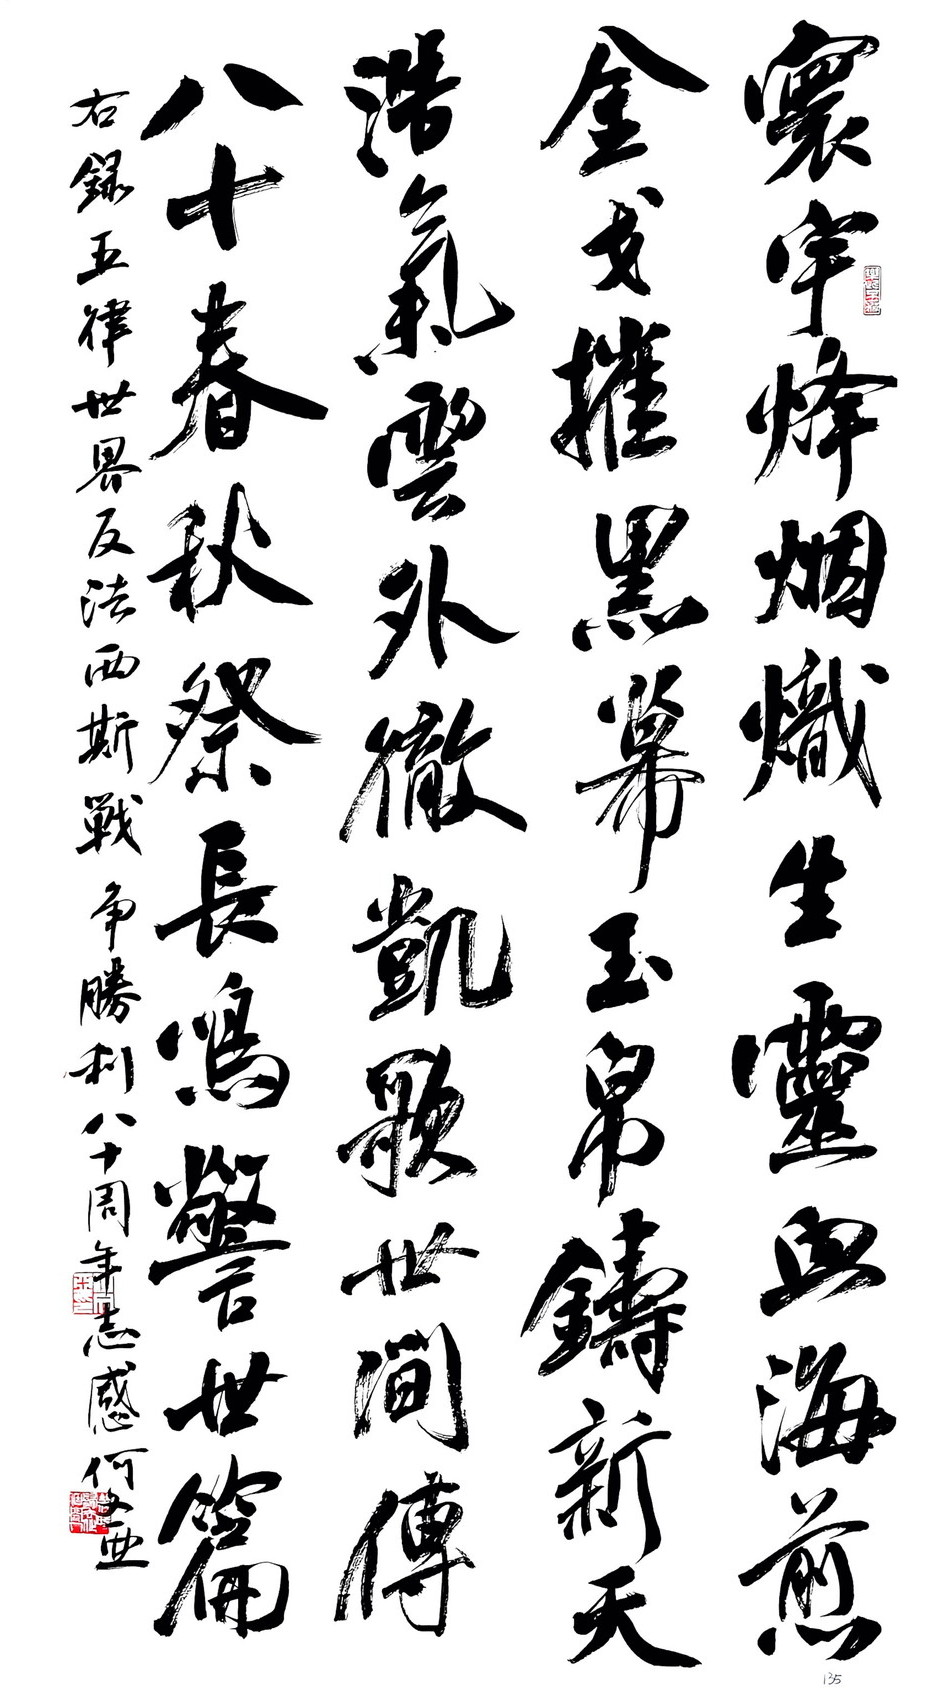 寰宇烽烟熾生靈血海煎
金戈摧黑幕玉帛鑄新天
浩氣雲外徹凱歌世間傳
八十春秋祭長鳴警世篇
右録五律世界反法西斯戰争勝利八十周年志感何
135